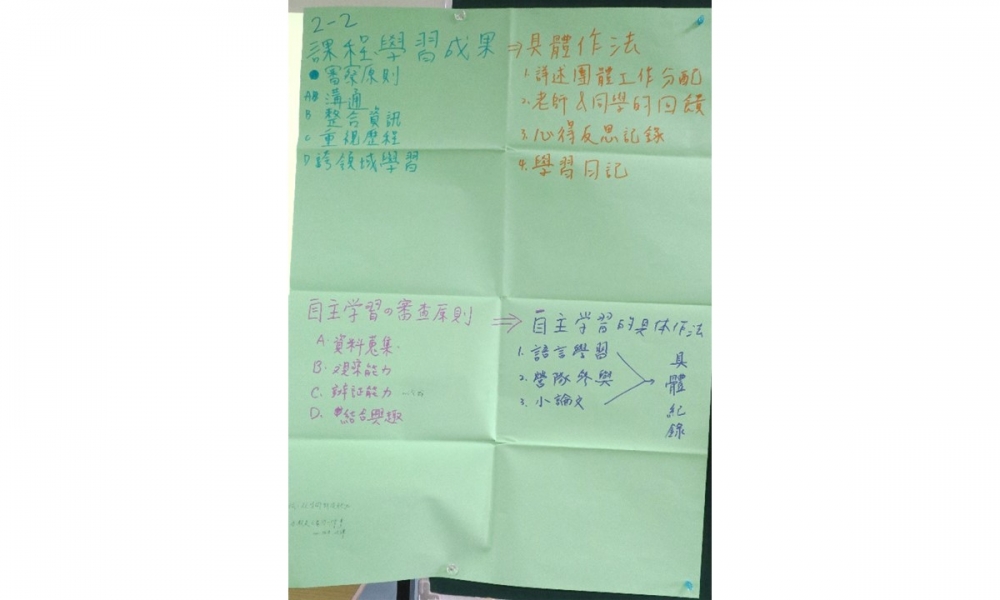 2-2
課程學習成果 ⇒ 具體作法
審察原則
A 溝通
B 整合資訊
C 重視歷程
D 跨領域學習
1. 詳述團體工作分配
2. 老師&同學的回饋
3. 心得反思記錄
4. 學習日記
自主学習の審查原則 ⇒ 自主学習的具体作法
A. 資料蒐集
B. 觀察能力
C. 辯証能力
D. 結合興趣
1. 語言學習
2. 營隊參與
3. 小論文
具體紀錄